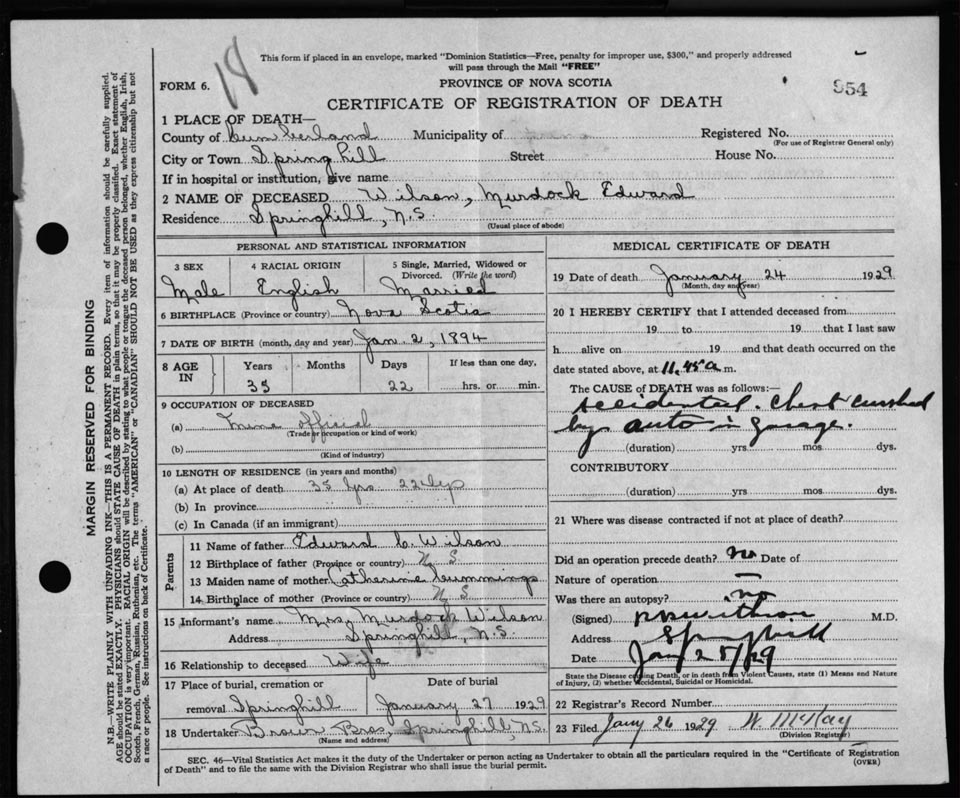 18
This form if placed in an envelope, marked "Dominion Statistics—Free, penalty for improper use, $300," and properly addressed
will pass through the Mail "FREE"
FORM 6.
PROVINCE OF NOVA SCOTIA
954
CERTIFICATE OF REGISTRATION OF DEATH
1 PLACE OF DEATH—
County of Cumberland Municipality of Registered No.
(For use of Registrar General only)
City or Town Spring hill Street House No.
If in hospital or institution, give name
2 NAME OF DECEASED Wilson, Murdock Edward
Residence Springhill, N.S.
(Usual place of abode)
PERSONAL AND STATISTICAL INFORMATION
3 SEX 4 RACIAL ORIGIN 5 Single, Married, Widowed or
Divorced. (Write the word)
Male English Married
6 BIRTHPLACE (Province or country) Nova Scotia
7 DATE OF BIRTH (month, day and year) Jan 2, 1894
8 AGE IN Years Months Days If less than one day,
35 22 hrs. or min.
9 OCCUPATION OF DECEASED
(a) Mine official
(Trade or occupation or kind of work)
(b)
(Kind of industry)
10 LENGTH OF RESIDENCE (in years and months)
(a) At place of death 35 yrs 22 dys
(b) In province
(c) In Canada (if an immigrant)
Parents
11 Name of father Edward C. Wilson
12 Birthplace of father (Province or country) N. S.
13 Maiden name of mother Catherine Cummings
14 Birthplace of mother (Province or country) N. S.
15 Informant's name Mrs. Murdock Wilson
Address Springhill, N.S.
16 Relationship to deceased Wife
17 Place of burial, cremation or Date of burial
removal Springhill January 27 1929
18 Undertaker Brown Bros, Springhill, N.S.
(Name and address)
MEDICAL CERTIFICATE OF DEATH
19 Date of death January 24 1929
(Month, day and year)
20 I HEREBY CERTIFY that I attended deceased from
19 to 19 that I last saw
h alive on 19 and that death occurred on the
date stated above, at 11.45 a m.
The CAUSE of DEATH was as follows:—
Accidental. Chest crushed
by auto in garage.
(duration) yrs mos dys.
CONTRIBUTORY
(duration) yrs mos. dys.
21 Where was disease contracted if not at place of death?
Did an operation precede death? No Date of
Nature of operation —
Was there an autopsy? no
(Signed) M.D.
Address Springhill
Date Jany 25/29
State the Disease causing Death, or in death from Violent Causes, state (1) Means and Nature
of Injury, (2) whether Accidental, Suicidal or Homicidal.
22 Registrar's Record Number
23 Filed Jany 26 1929 W. McKay
(Division Registrar)
SEC. 46—Vital Statistics Act makes it the duty of the Undertaker or person acting as Undertaker to obtain all the particulars required in the "Certificate of Registration
of Death" and to file the same with the Division Registrar who shall issue the burial permit.
(OVER)
MARGIN RESERVED FOR BINDING
N.B.—WRITE PLAINLY WITH UNFADING INK—THIS IS A PERMANENT RECORD. Every item of information should be carefully supplied.
AGE should be stated EXACTLY. PHYSICIANS should STATE CAUSE OF DEATH in plain terms, so that it may be properly classified. Exact statement of
OCCUPATION is very important. RACIAL ORIGIN will be described by stating to what people or tongue the deceased person belonged, whether English, Irish,
Scotch, French, German, Russian, Ruthenian, etc. The terms "AMERICAN" or "CANADIAN" SHOULD NOT BE USED as they express citizenship but not
a race or people. See instructions on back of Certificate.